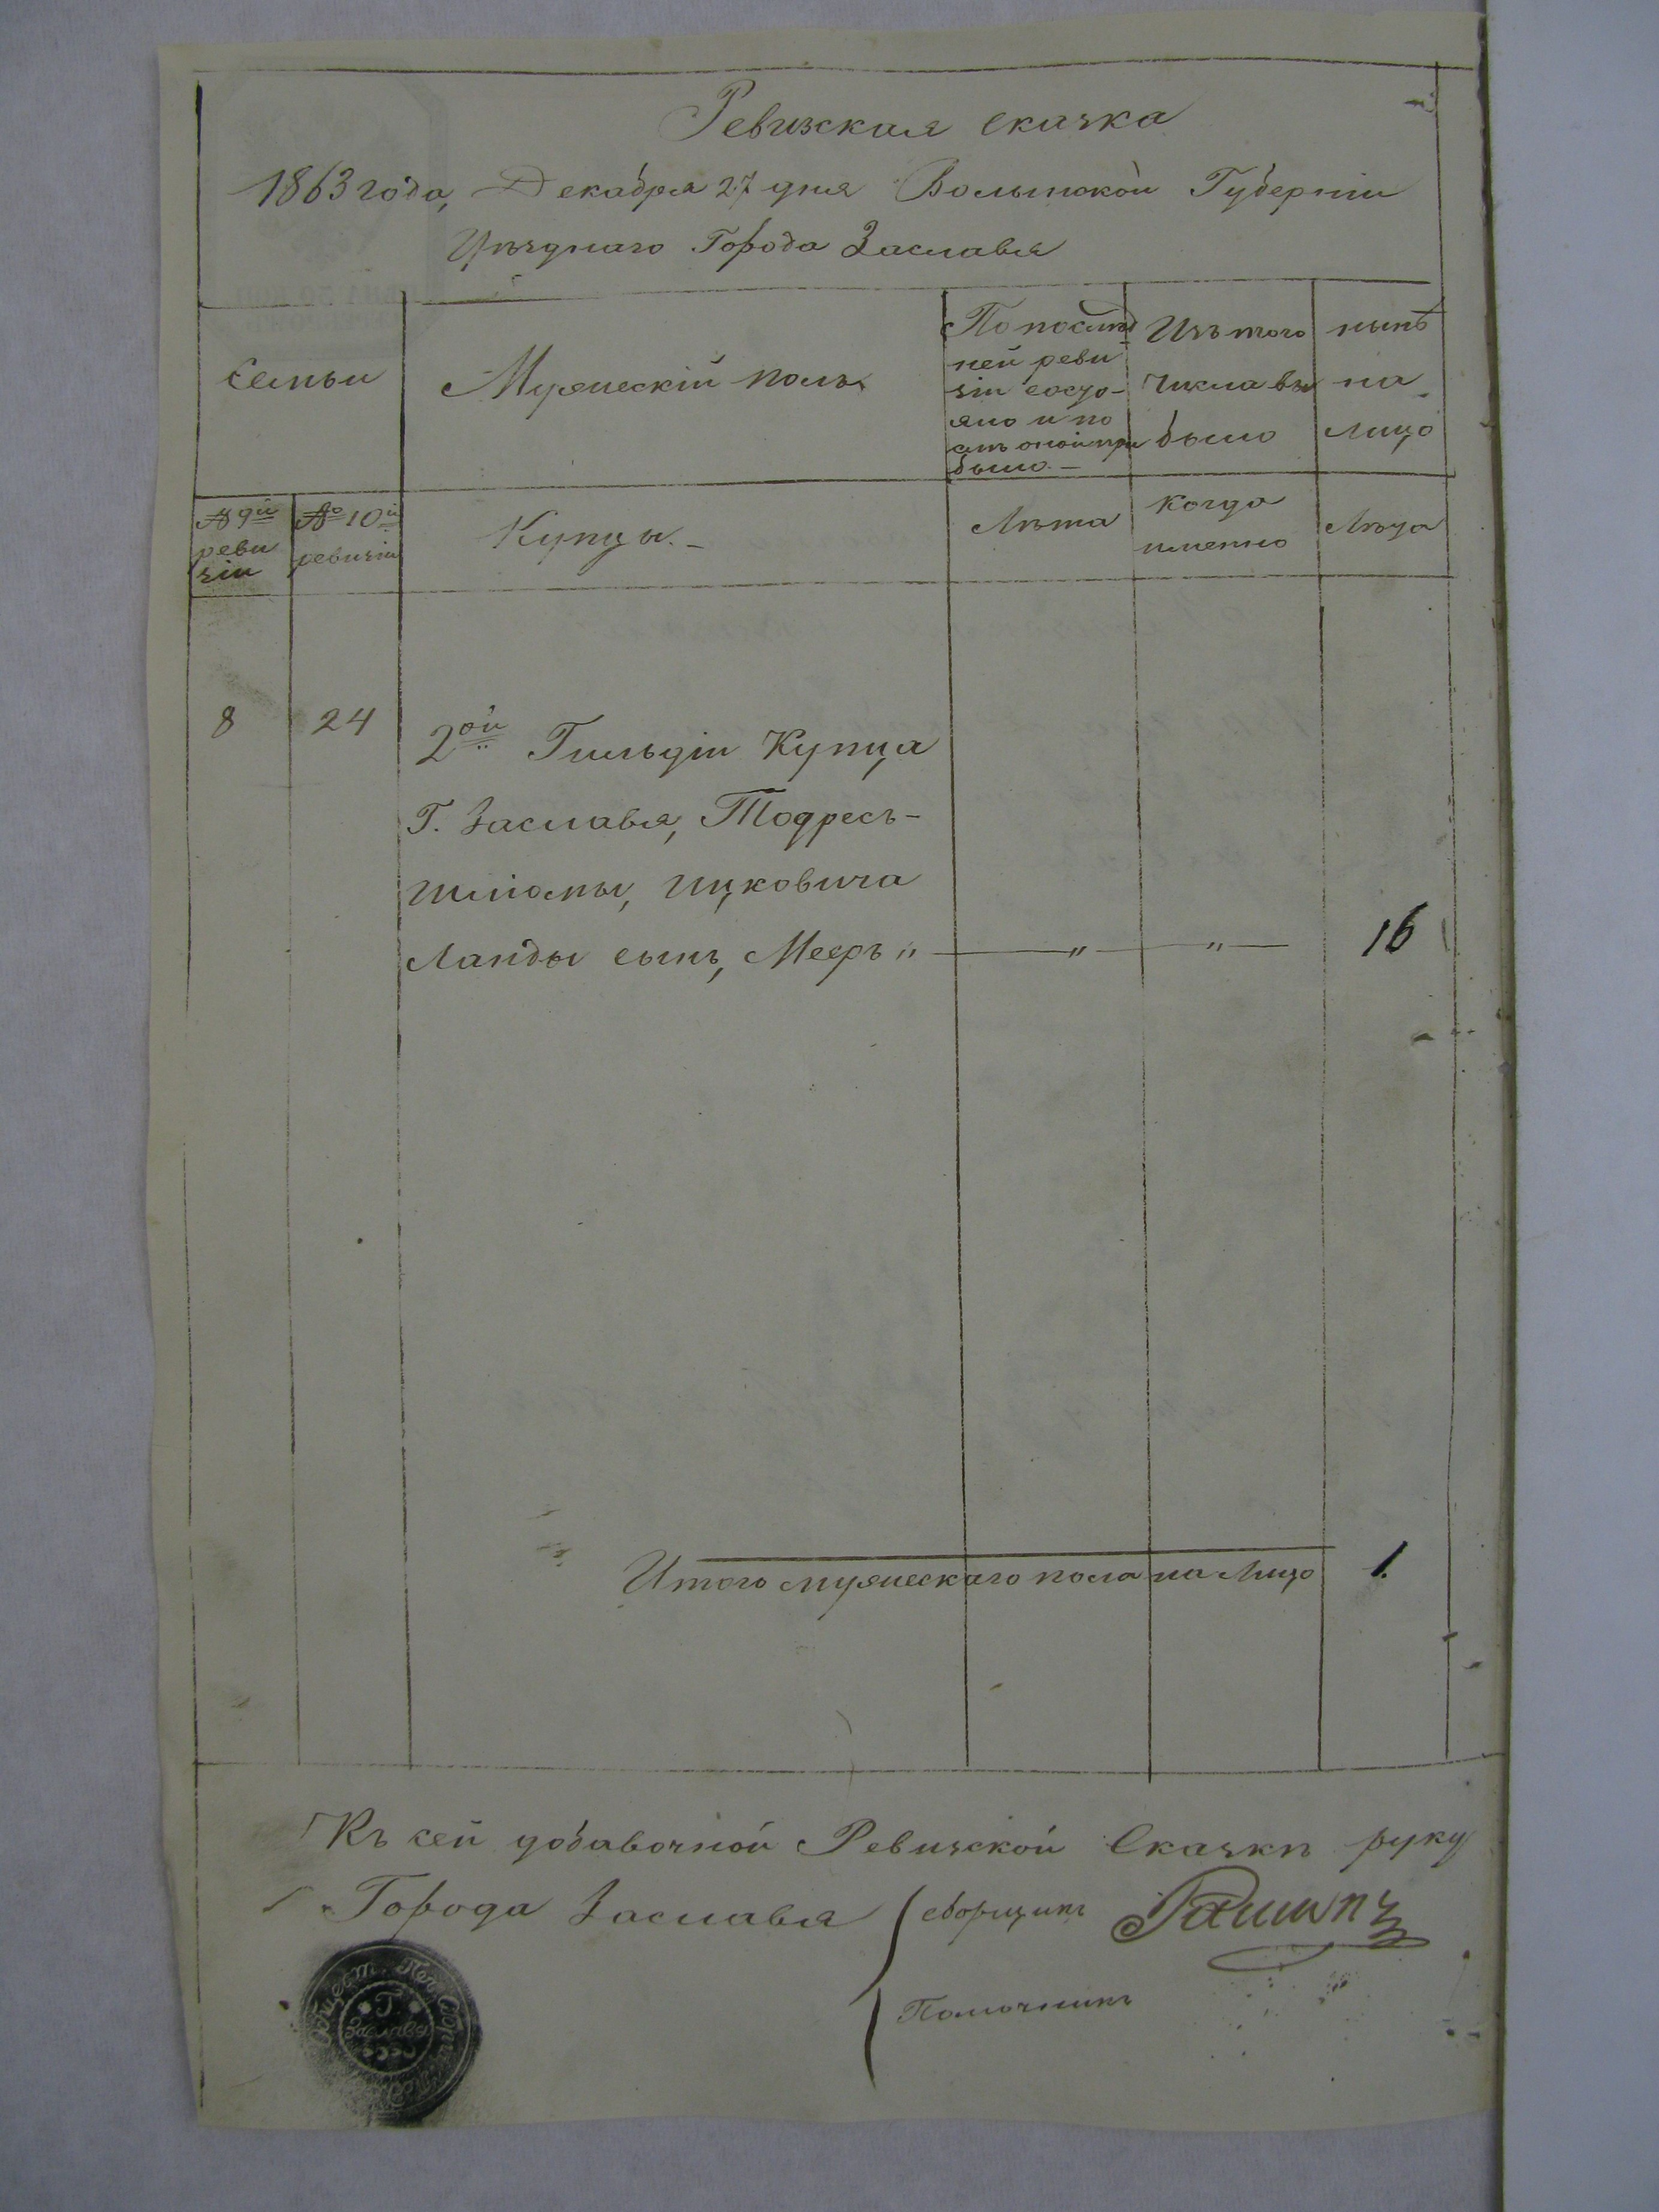 Ревизская сказка
1863 года, Декабря 27 дня Волынской Губерніи
Уѣзднаго Города Заславля
Семьи
Мужескій полъ
По послѣд
ней реви
зіи состо-
яло и по
слѣ оной при
было. —
Изъ того
числа вы
было
нынѣ
на
лицо
№ 9й
реви
зіи
№ 10й
ревизіи
Купцы. —
Лѣта
когда
именно
Лѣта
8
24
2ой Гильдіи Купца
Г. Заславля, Тодресъ-
Шліомы, Ицковича
Ланды сынъ, Мееръ " — " — " — 16
Итого мужескаго пола на Лицо 1.
Къ сей добавочной Ревизской Сказкѣ руку
Города Заславля
сборщикъ
Помочникъ
Г.